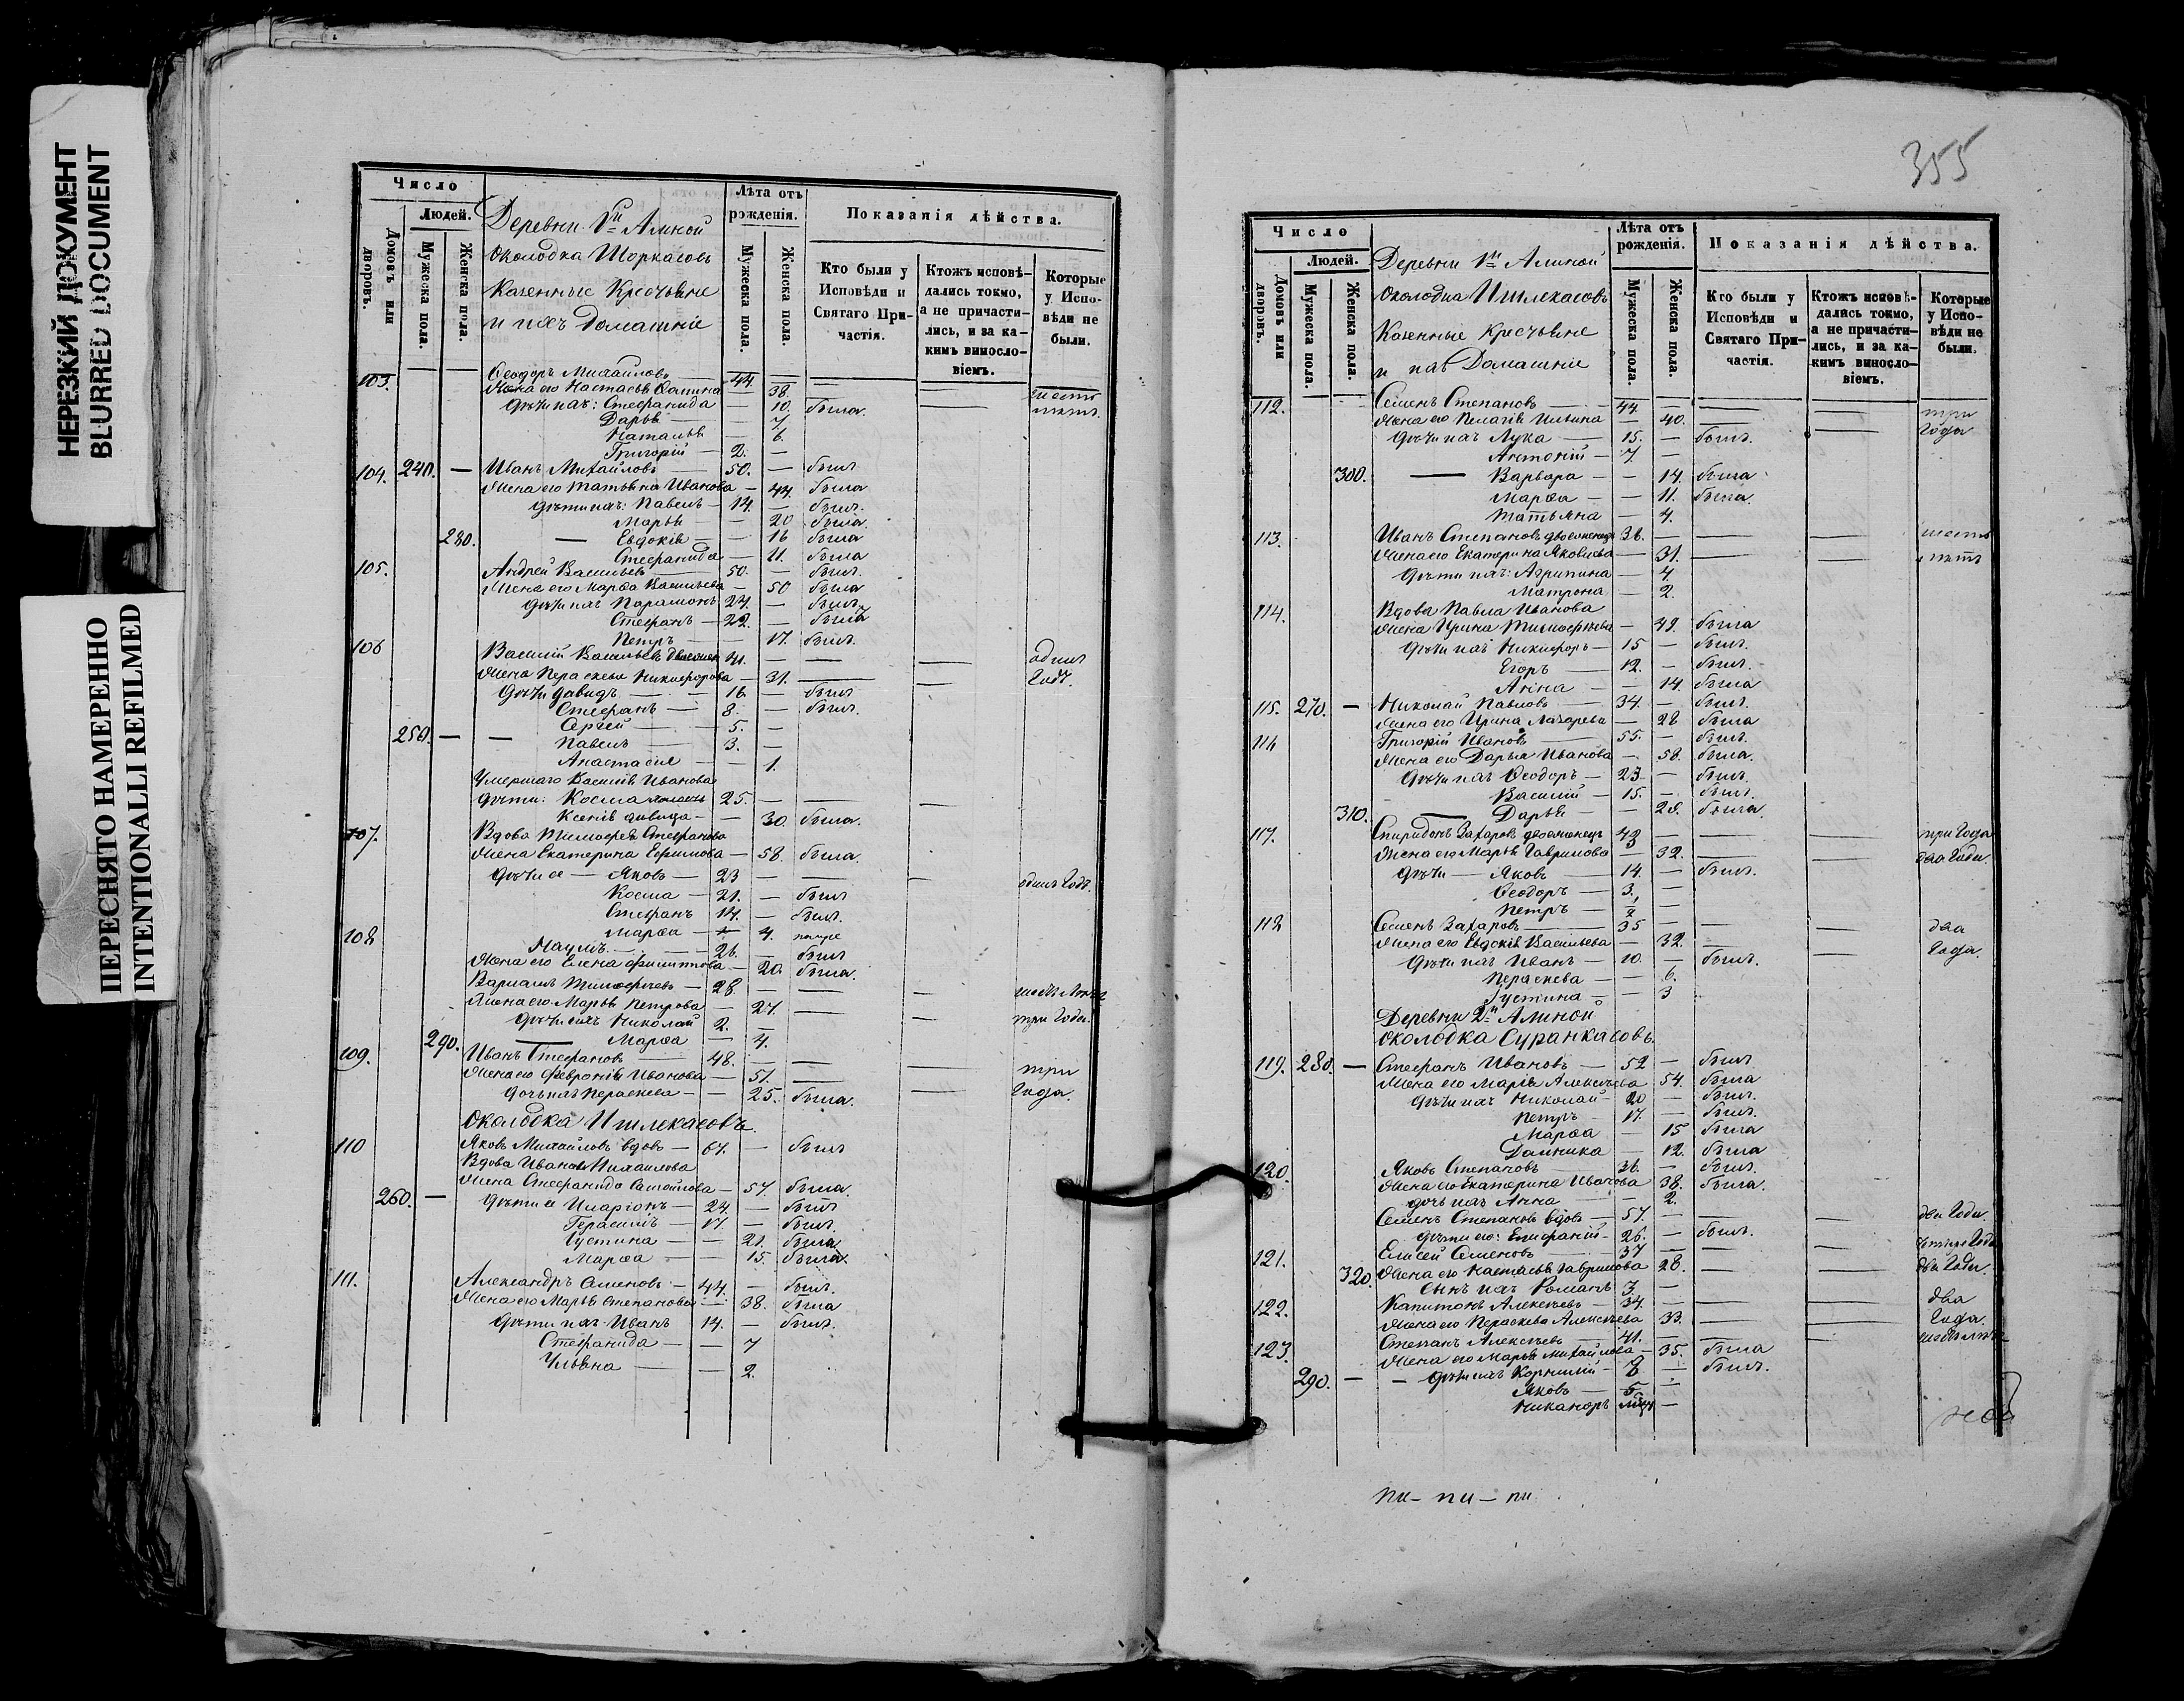 НЕРЕЗКИЙ ДОКУМЕНТ
BLURRED DOCUMENT
ПЕРЕСНЯТО НАМЕРЕННО
INTENTIONALLI REFILMED
Число
Людей.
Домовъ или дворовъ.
Мужеска пола.
Женска пола.
Деревни 1й Алиной
околодка Шоркасовъ
Казенные Крестьяне
и ихъ Домашніе
Лѣта отъ рожденія.
Мужеска пола.
Женска пола.
Показанія дѣйства.
Кто были у Исповѣди и Святаго Причастія.
Ктожъ исповѣдались токмо, а не причастились, и за какимъ винословіемъ.
Которые у Исповѣди не были.
103. Ѳеодоръ Михайловъ — 44. —
Жена его Настасья — 38. шесть
дѣти ихъ: Стефанида — 10. была. лѣтъ
Дарья — 7
Наталья — 6.
Григорій — 2. —
104. 240. — Иванъ Михайловъ — 50. — былъ
Жена его Татьяна Иванова — 44. была
дѣти ихъ: Павелъ — 14. — былъ.
Марья — 20 была.
280. — Евдокія — 16 была
Стефанида — 11. была
105. Андрей Васильевъ 50. — былъ.
Жена его Марѳа Васильева 50 была
дѣти ихъ Парамонъ 24. — былъ.
Стефанъ — 22. — былъ
Петръ — 17. былъ.
106 Василій Васильевъ 41. — — одинъ
Жена Параскева Никифорова — 31. — Годъ.
дѣти Давидъ — 16. — былъ
Стефанъ — 8. — былъ.
Сергей — 5. —
250. — Павелъ — 3. —
Анастасія — 1.
Умершаго Василія Иванова
дѣти: Косма 25. —
Ксенія дѣвица — 30. была.
107. Вдова Тимоѳея Стефанова
Жена Екатерина Ефимова — 58. была.
дѣти ея — Яковъ — 23 — — одинъ Годъ.
Косма — 21. — былъ
Стефанъ 14. — былъ.
Марѳа — 4.
108 Наумъ — 26. — былъ
Жена его Елена Филиппова — 20. была.
Варламъ Тимофеевъ — 28. —
Жена его Марья Петрова — 27. — три Года.
дѣти ихъ Николай 2. —
290. Марѳа — 4.
109. Иванъ Стефановъ — 48. — три
Жена его Февронія Иванова — 51. — Года.
дочь ихъ Параскева — 25. была.
Околодка Ишлекасовъ
110 Яковъ Михайловъ вдовъ — 67. — былъ
Вдова Ивана Михайлова
Жена Стефанида Самойлова — 57. была.
260. — дѣти ея Иларіонъ — 24. — былъ
Герасимъ — 17. — былъ.
Густина — 21. была
Марѳа — 15. была.
111. Александръ Семеновъ — 44. — былъ.
Жена его Марья Степанова — 38. была
дѣти ихъ Иванъ 14. — былъ.
Стефанида — 7
Ульяна — 2.
355
Число
Людей.
Домовъ или дворовъ.
Мужеска пола.
Женска пола.
Деревни 1й Алиной
околодка Ишлекасовъ
Казенные Крестьяне
и ихъ Домашніе
Лѣта отъ рожденія.
Мужеска пола.
Женска пола.
Показанія дѣйства.
Кто были у Исповѣди и Святаго Причастія.
Ктожъ исповѣдались токмо, а не причастились, и за какимъ винословіемъ.
Которые у Исповѣди не были.
112. Семенъ Степановъ — 44. — три
Жена его Пелагія Ильина — 40. — Года
дѣти ихъ Лука — 15. — былъ.
Антоній — 7 —
300. — Варвара — 14. была
Марѳа — 11. была.
Татьяна — 4.
113. Иванъ Степановъ двоеженецъ 36. — шесть
Жена его Екатерина Яковлева — 31. — лѣтъ
дѣти ихъ: Агрипина — 4.
Матрона — 2.
114. Вдова Павла Иванова
Жена Ирина Тимофеева — 49. была
дѣти ихъ Никифоръ — 15 — былъ.
Егоръ — 12. — былъ.
Анна — 14. была
115. 270. — Николай Павловъ — 34. — былъ.
Жена его Ирина Лазарева — 28 была
116 Григорій Ивановъ — 55. — былъ.
Жена его Дарья Иванова — 58. была.
дѣти ихъ Ѳеодоръ — 23. — былъ.
Василій — 15. — былъ.
310. — Дарья — 20. была.
117. Спиридонъ Захаровъ двоеженецъ 43 — три Года
Жена его Марья Гаврилова — 32. — два Года.
дѣти — Яковъ — 14. — былъ.
Ѳеодоръ — 3. —
Петръ — ½ —
118 Семенъ Захаровъ — 35 — два
Жена его Евдокія Васильева — 32. — Года.
дѣти ихъ Иванъ — 10. — былъ.
Параскева — 6.
Густина — 3
Деревни 2й Алиной
околодка Суранкасовъ.
119. 280. — Стефанъ Ивановъ — 52 — былъ.
Жена его Марія Алексѣева 54. была
дѣти ихъ Николай — 20 — былъ.
Петръ — 17. — былъ.
Марѳа — 15 была
Домника — 12. была
120. Яковъ Степановъ — 36. — былъ.
Жена его Екатерина Иванова 38. была.
дочь ихъ Анна — 2.
Семенъ Степановъ вдовъ — 57. — два Года.
дѣти его: Епифаній — 26. — былъ.
121. Елисей Семеновъ — 37 —
320. Жена его Настасья Гаврилова 28. — два Года.
сынъ ихъ Романъ 3. —
122. Капитонъ Алексѣевъ — 34. — два
Жена его Параскева Алексѣева 33. — Года.
123. Степанъ Алексѣевъ — 41. —
Жена его Марья Михайлова — 35. была
290. — дѣти ихъ Корнилій — 8 — былъ.
Яковъ — 5 —
Никаноръ —
пи — пи — пи